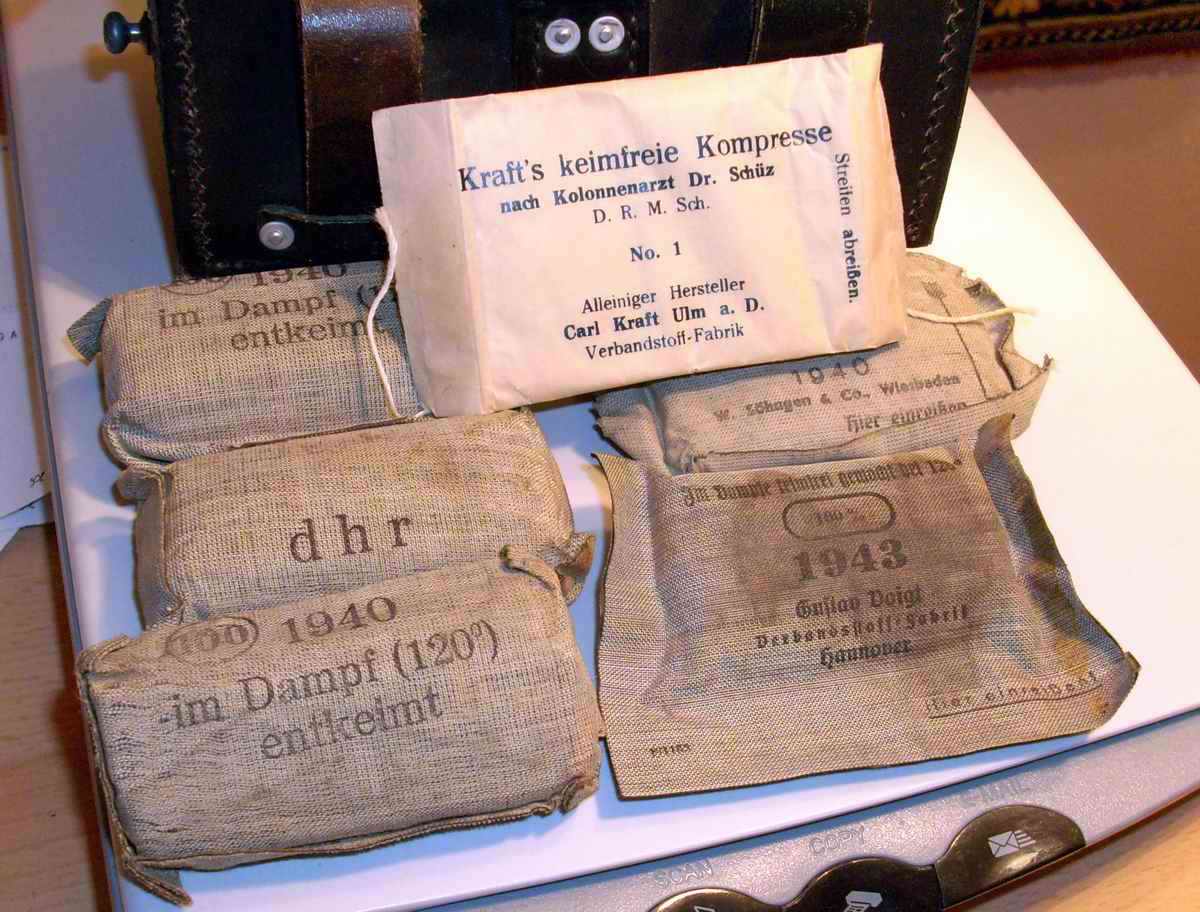 Kraft's keimfreie Kompresse
nach Kolonnenarzt Dr. Schüz
D. R. M. Sch.
No. 1
Alleiniger Hersteller
Carl Kraft Ulm a. D.
Verbandstoff-Fabrik
Streifen abreißen.
100 1940
im Dampf (1
entkeimt
1940
W. Söhngen & Co., Wiesbaden
Hier einreißen
d h r
100 1940
im Dampf (120°)
entkeimt
Im Dampfe keimfrei gemacht bei 120°
100 %
1943
Gustav Voigt
Verbandstoff-Fabrik
Hannover
Hier einreißen
SCAN
COPY
E-MAIL